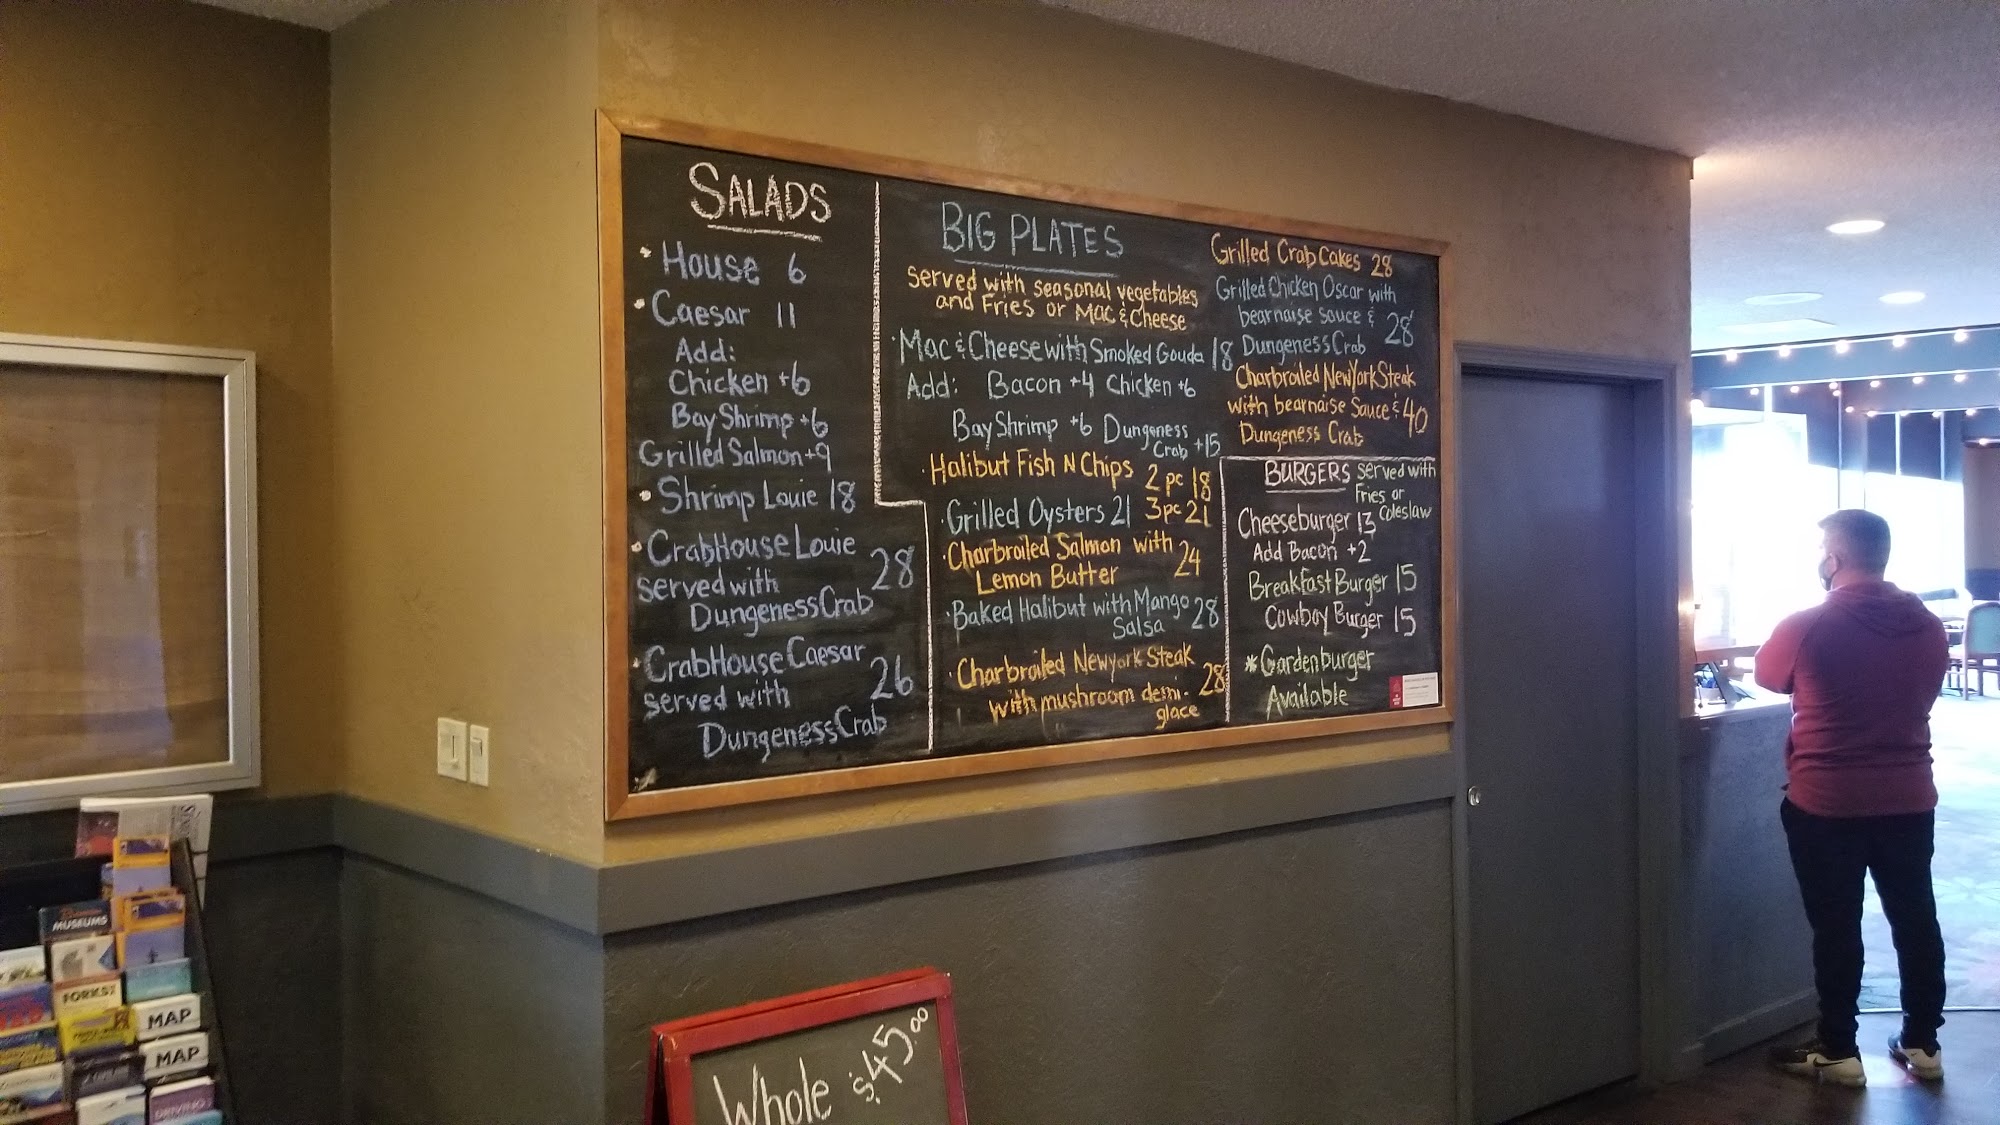 SALADS
• House 6
• Caesar 11
Add:
Chicken +6
Bay Shrimp +6
Grilled Salmon +9
• Shrimp Louie 18
• CrabHouse Louie 28
served with
Dungeness Crab
• CrabHouse Caesar 26
served with
Dungeness Crab
BIG PLATES
served with seasonal vegetables
and Fries or Mac & Cheese
• Mac & Cheese with Smoked Gouda 18
Add: Bacon +4 Chicken +6
Bay Shrimp +6 Dungeness
Crab +15
• Halibut Fish N Chips 2 pc 18
3pc 21
• Grilled Oysters 21
• Charbroiled Salmon with 24
Lemon Butter
• Baked Halibut with Mango 28
Salsa
• Charbroiled Newyork Steak 28
with mushroom demi-
glace
Grilled Crab Cakes 28
Grilled Chicken Oscar with
bearnaise sauce & 28
Dungeness Crab
Charbroiled New York Steak
with bearnaise Sauce & 40
Dungeness Crab
BURGERS served with
Fries or
Coleslaw
Cheeseburger 13
Add Bacon +2
Breakfast Burger 15
Cowboy Burger 15
* Gardenburger
Available
Whole $45.00
MUSEUMS
FORKS
MAP
MAP
DRIVING